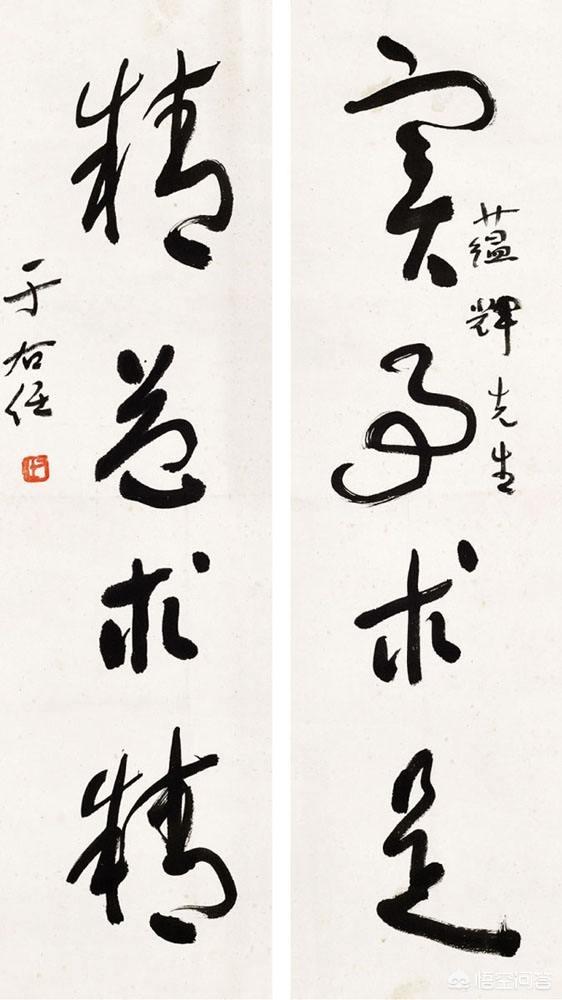 實事求是
蘊輝先生
精益求精
于右任
悟空问答